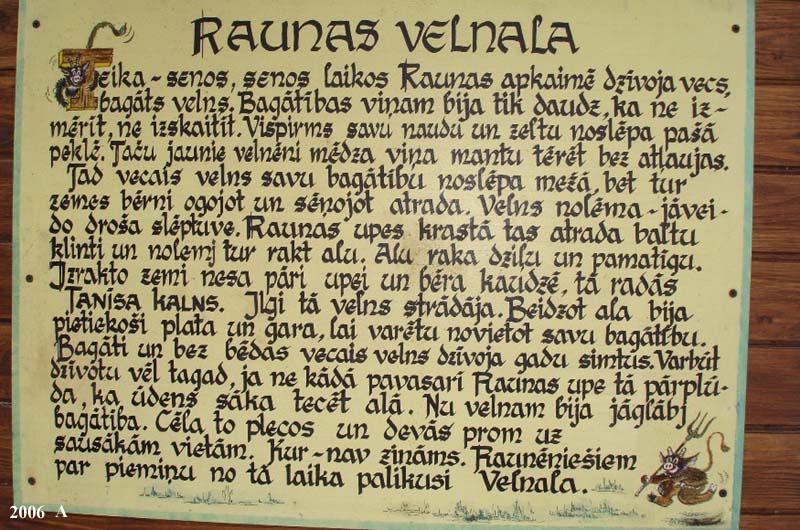 RAUNAS VELNALA
Teika - senos, senos laikos Raunas apkaimē dzīvoja vecs,
bagāts velns. Bagātības viņam bija tik daudz, ka ne iz-
mērīt, ne izskaitīt. Vispirms savu naudu un zeltu noslēpa pašā
peklē. Taču jaunie velnēni mēdza viņa mantu tērēt bez atļaujas.
Tad vecais velns savu bagātību noslēpa mežā, bet tur
zemes bērni ogojot un sēņojot atrada. Velns nolēma - jāvei-
do droša slēptuve. Raunas upes krastā tas atrada baltu
klinti un nolēmj tur rakt alu. Alu raka dziļu un pamatīgu.
Izrakto zemi nesa pāri upei un bēra kaudzē, tā radās
TANĪSA KALNS. Ilgi tā velns strādāja. Beidzot ala bija
pietiekoši plata un gara, lai varētu novietot savu bagātību.
Bagāti un bez bēdās vecais velns dzīvoja gadu simtus. Varbūt
dzīvotu vēl tagad, ja ne kādā pavasarī Raunas upe tā pārplū-
da, ka ūdens sāka tecēt alā. Nu velnam bija jāglābj
bagātība. Cēla to plecos un devās prom uz
sausākām vietām. Kur - nav zināms. Raunēniešiem
par piemiņu no tā laika palikusi Velnala.
2006 A